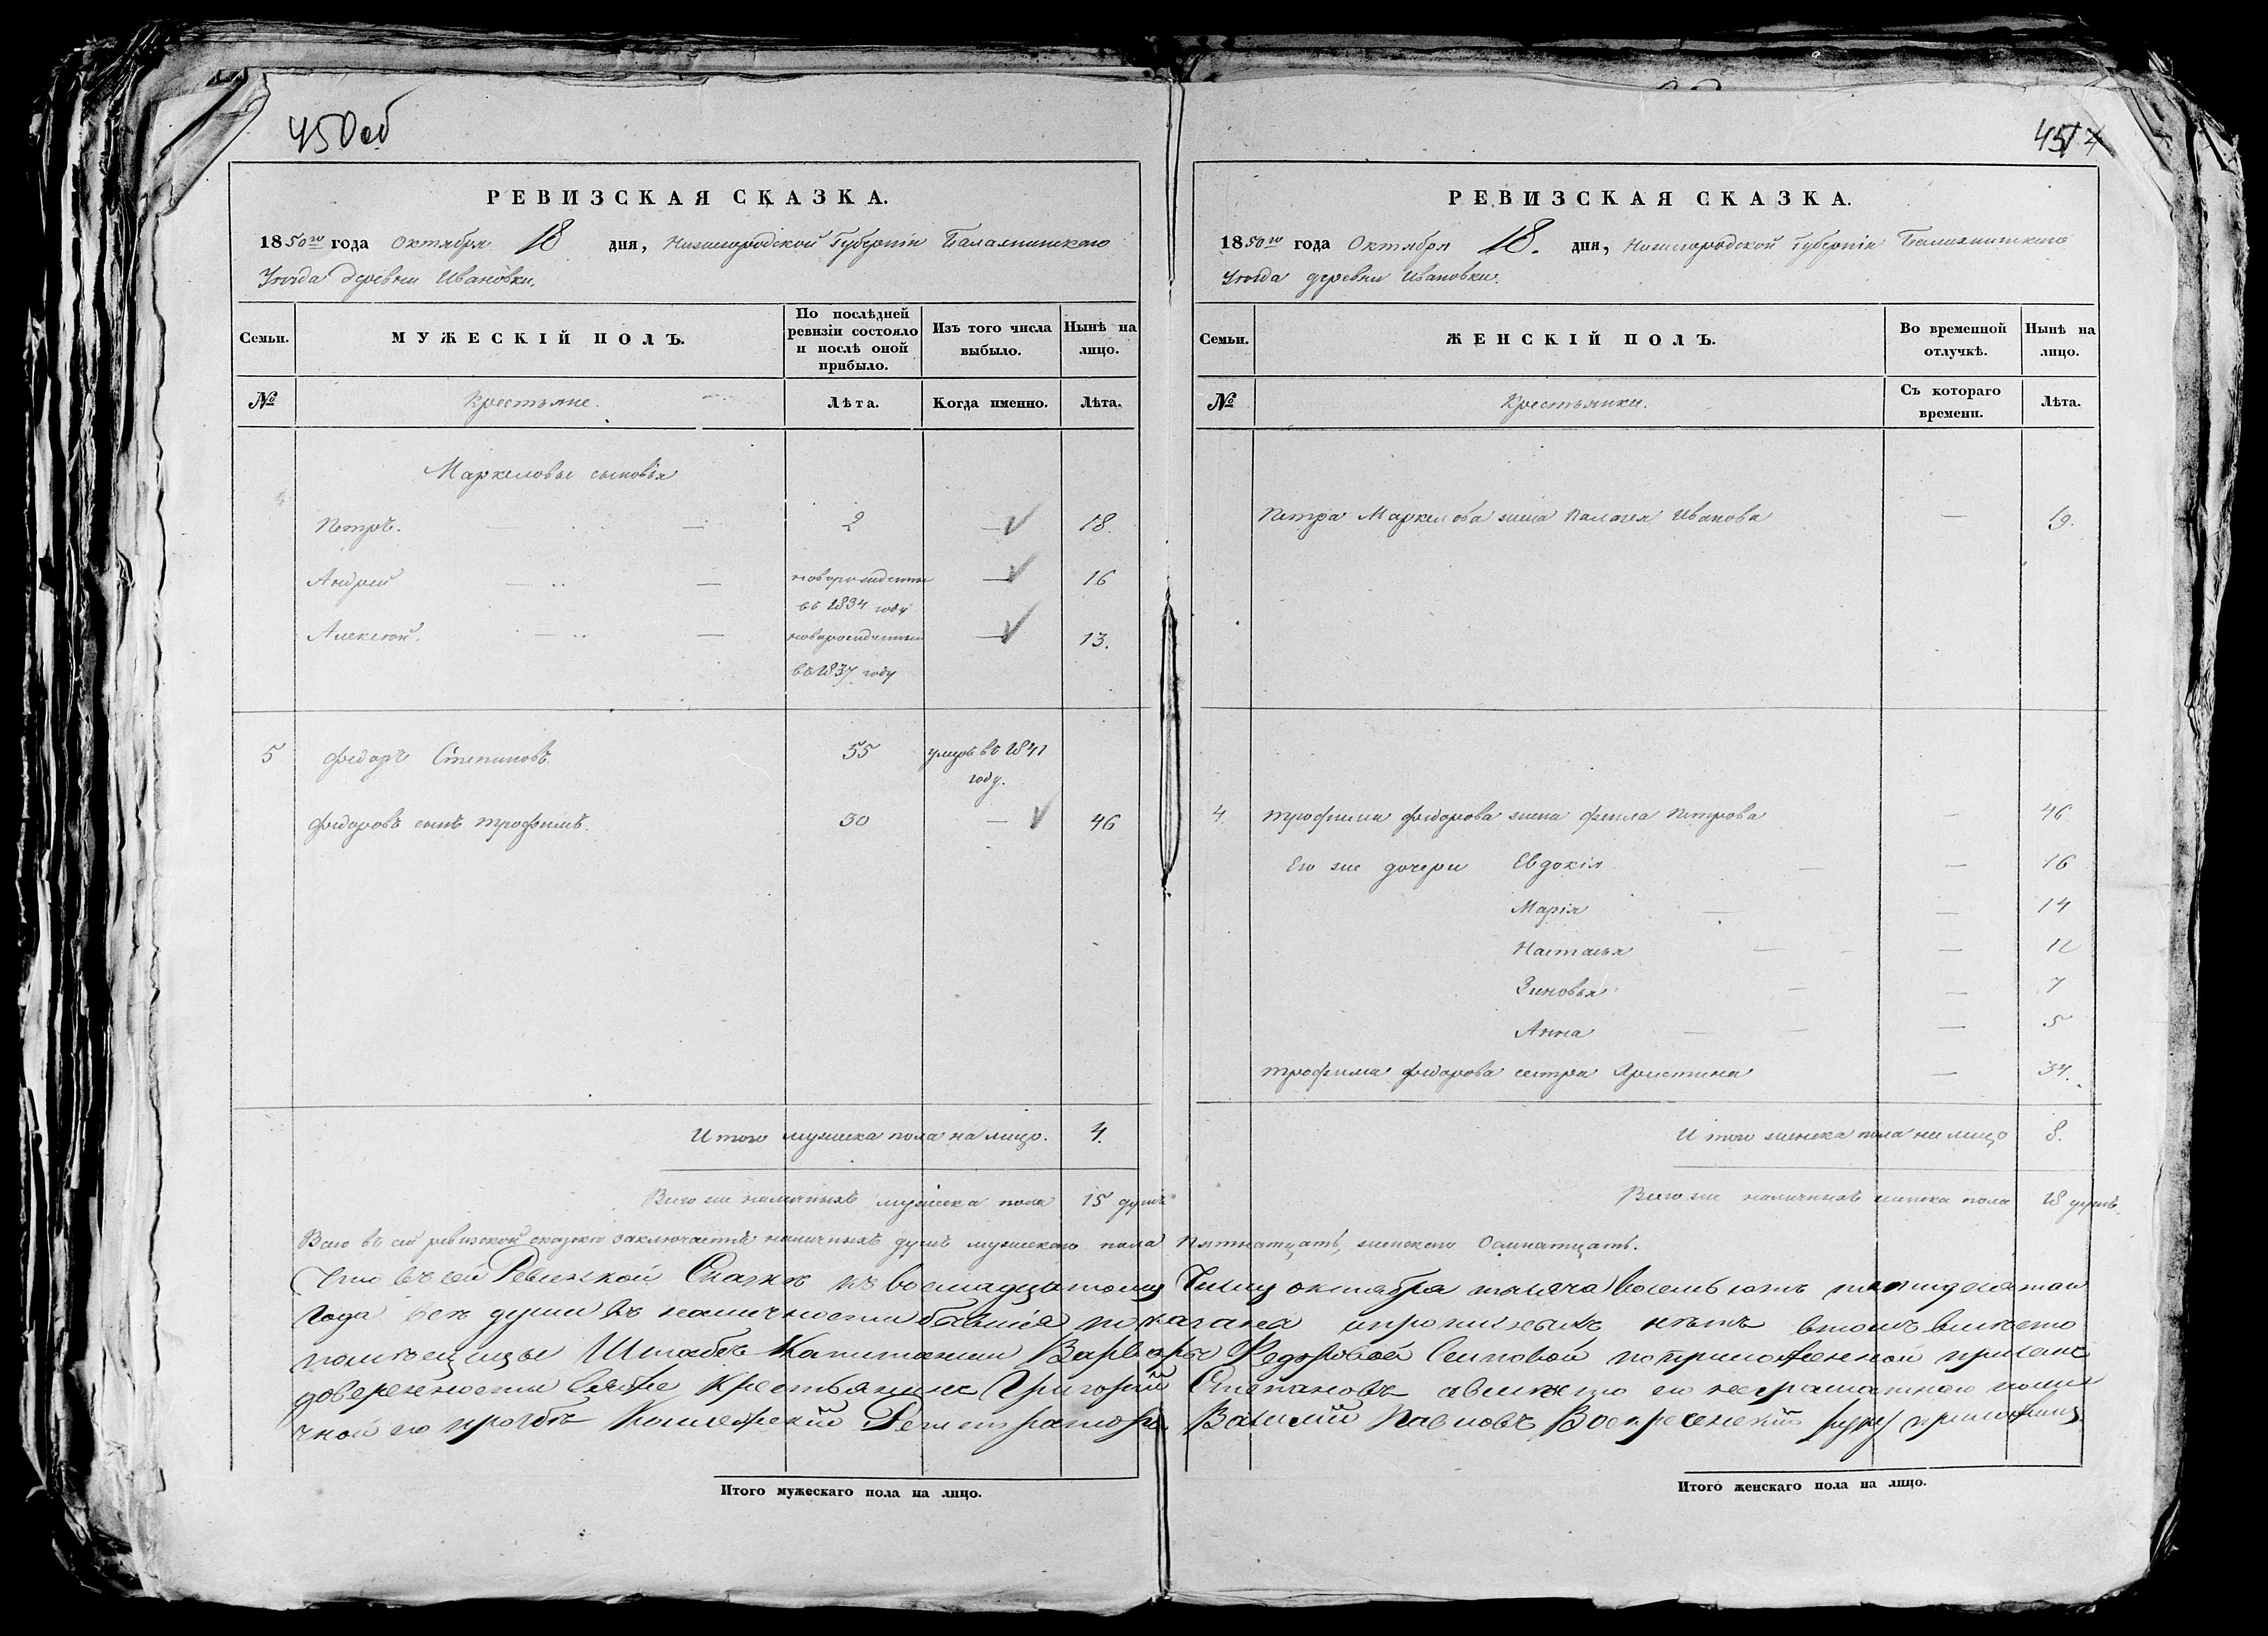 450 об
РЕВИЗСКАЯ СКАЗКА.
1850го года Октября 18 дня, Нижегородской Губерніи Балахнинскаго
Уѣзда деревни Ивановки.
Семьи. МУЖЕСКІЙ ПОЛЪ. По послѣдней ревизіи состояло и послѣ оной прибыло. Изъ того числа выбыло. Нынѣ на лицо.
№ Крестьяне. Лѣта. Когда именно. Лѣта.
Маркеловы сыновья
Петръ. — — 2 — 18.
Андрей — — новорожденный — 16
въ 1834 году
Алексѣй. — — новорожденный — 13.
въ 1837 году
5 Федоръ Степановъ 55 умеръ въ 1841
году.
Федоровъ сынъ Трофимъ. 30 — 46
Итого мужеска пола на лицо. 4.
Всего же наличныхъ мужеска пола 15 душъ
451
РЕВИЗСКАЯ СКАЗКА.
1850го года Октября 18. дня, Нижегородской губерніи Балахнинскаго
Уѣзда деревни Ивановки.
Семьи. ЖЕНСКІЙ ПОЛЪ. Во временной отлучкѣ. Нынѣ на лицо.
№ Крестьянки. Съ котораго времени. Лѣта.
Петра Маркелова жена Палагея Иванова — 19.
4 Трофима Федорова жена Фекла Петрова — 46
Его же дочери Евдокія — — 16
Марія — — 14
Настасья — — 12
Зиновья — — 7
Анна — — — 5
Трофима Федорова сестра Христина — 34.
Итого женска пола на лицо 8.
Всего же наличныхъ женска пола 18 душъ.
Всего въ сей ревизской сказкѣ заключается наличныхъ душъ мужескаго пола пятнатцать, женскаго Осмнатцать.
Что въ сей Ревизской Сказкѣ къ восмнадцатому Числу октября тысяча восемь сотъ пятидесятаго
Года всѣ души въ наличности бывшія показаны и прописныхъ нѣтъ въ томъ вмѣсто
помѣщицы Штабсъ Капитанши Варвары Федоровой по приложенной при семъ
довѣренности Ея же Крестьянинъ Григорій Степановъ а вмѣсто его неграмотнаго по
чной его прозбѣ Коллежскій Регистраторъ Василій Павловъ Воскресенскій руку приложилъ
Итого мужескаго пола на лицо.
Итого женскаго пола на лицо.